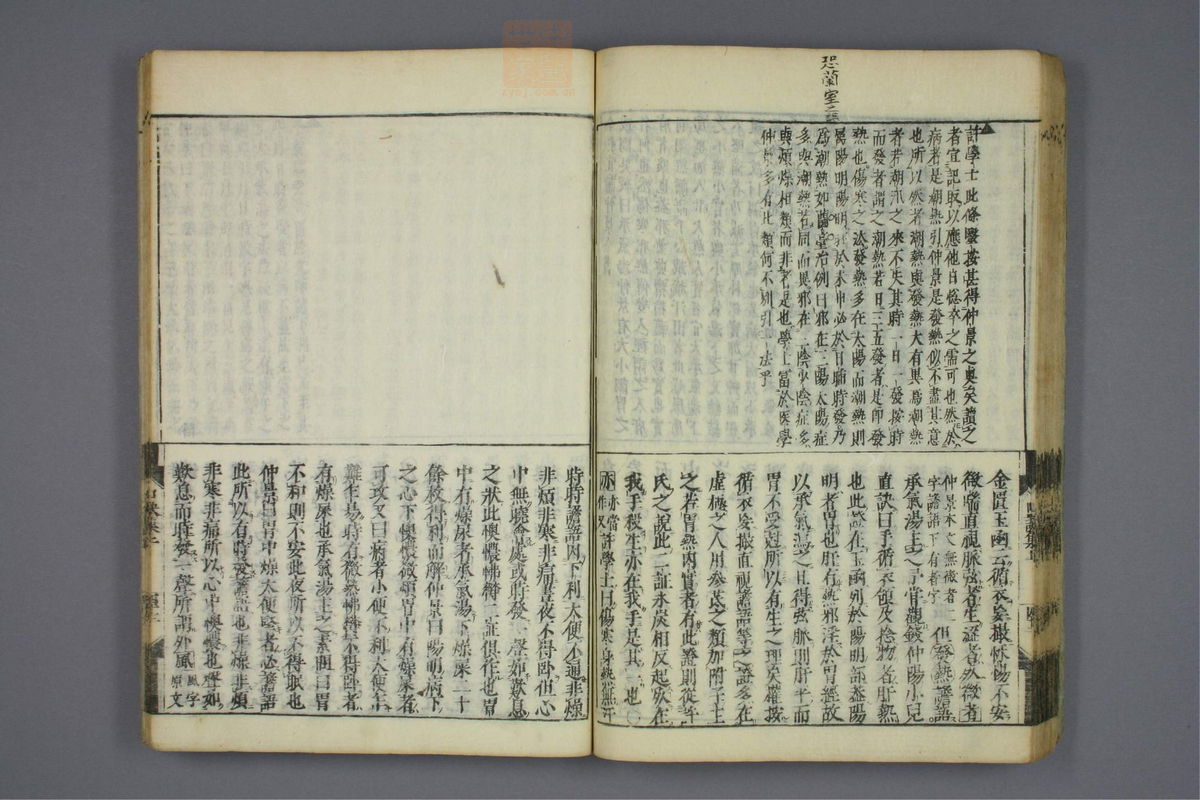 恐蘭室之誤
許學士此條醫按甚得仲景之奧矣讀之
者宜記取以應他日倉卒之需可也然於
病者是潮熱引仲景是發熱似不盡其意
也所以然者潮熱與發熱大有異爲潮熱
者若潮汛之來不失其時一日一發按時
而發者謂之潮熱若日三五發者是即發
熱也傷寒之法發熱多在太陽而潮熱則
屬陽明陽明旺於未申必於日晡時發乃
爲潮熱如蘭室治例曰邪在三陽太陽症
多與潮熱若同而異邪在二陰少陰症多
與煩燥相類而非者是也學士當於醫學
仲景多有此類何不引一法乎
金匱玉函云循衣妄撮怵惕不安
微喘直視脈弦者生澁者死微者
仲景本文無微者
字譫語下有者字
但發熱譫語
承氣湯主之予嘗觀錢仲陽小兒
直訣曰手循衣領及捻物者肝熱
也此證在玉函列於陽明部蓋陽
明者胃也肝有熱邪淫於胃經故
以承氣瀉之且得弦脈則肝平而
胃不受尅所以有生之理矣蘿按
循衣妄撮直視譫語等之證多在
虛極之人用參芪之類加附子主
之若胃熱內實者有此證則從許
氏之說此二証氷炭相反起死在
我手殺生亦在我手是其一也〇
亦亦當
作又
許學士曰傷寒身熱無汗
時時譫語因下利大便不通非燥
非煩非寒非痛晝夜不得臥但心
中無曉會處或時發一聲如歎息
之狀此懊憹怫鬱二証俱作也胃
中有燥屎者承氣湯下燥屎二十
餘枚得利而解仲景曰陽明病下
之心下懊憹微煩胃中有燥屎者
可攻又曰病者小便不利大便乍
難乍易時有微熱怫鬱不得臥者
有燥屎也承氣湯主之素問曰胃
不和則不安此夜所以不得眠也
仲景曰胃中燥大便堅者必譫語
此所以有時發譫語也非燥非煩
非寒非痛所以心中懊憹也聲如
歎息而時發一聲所謂外氣
風字
原文